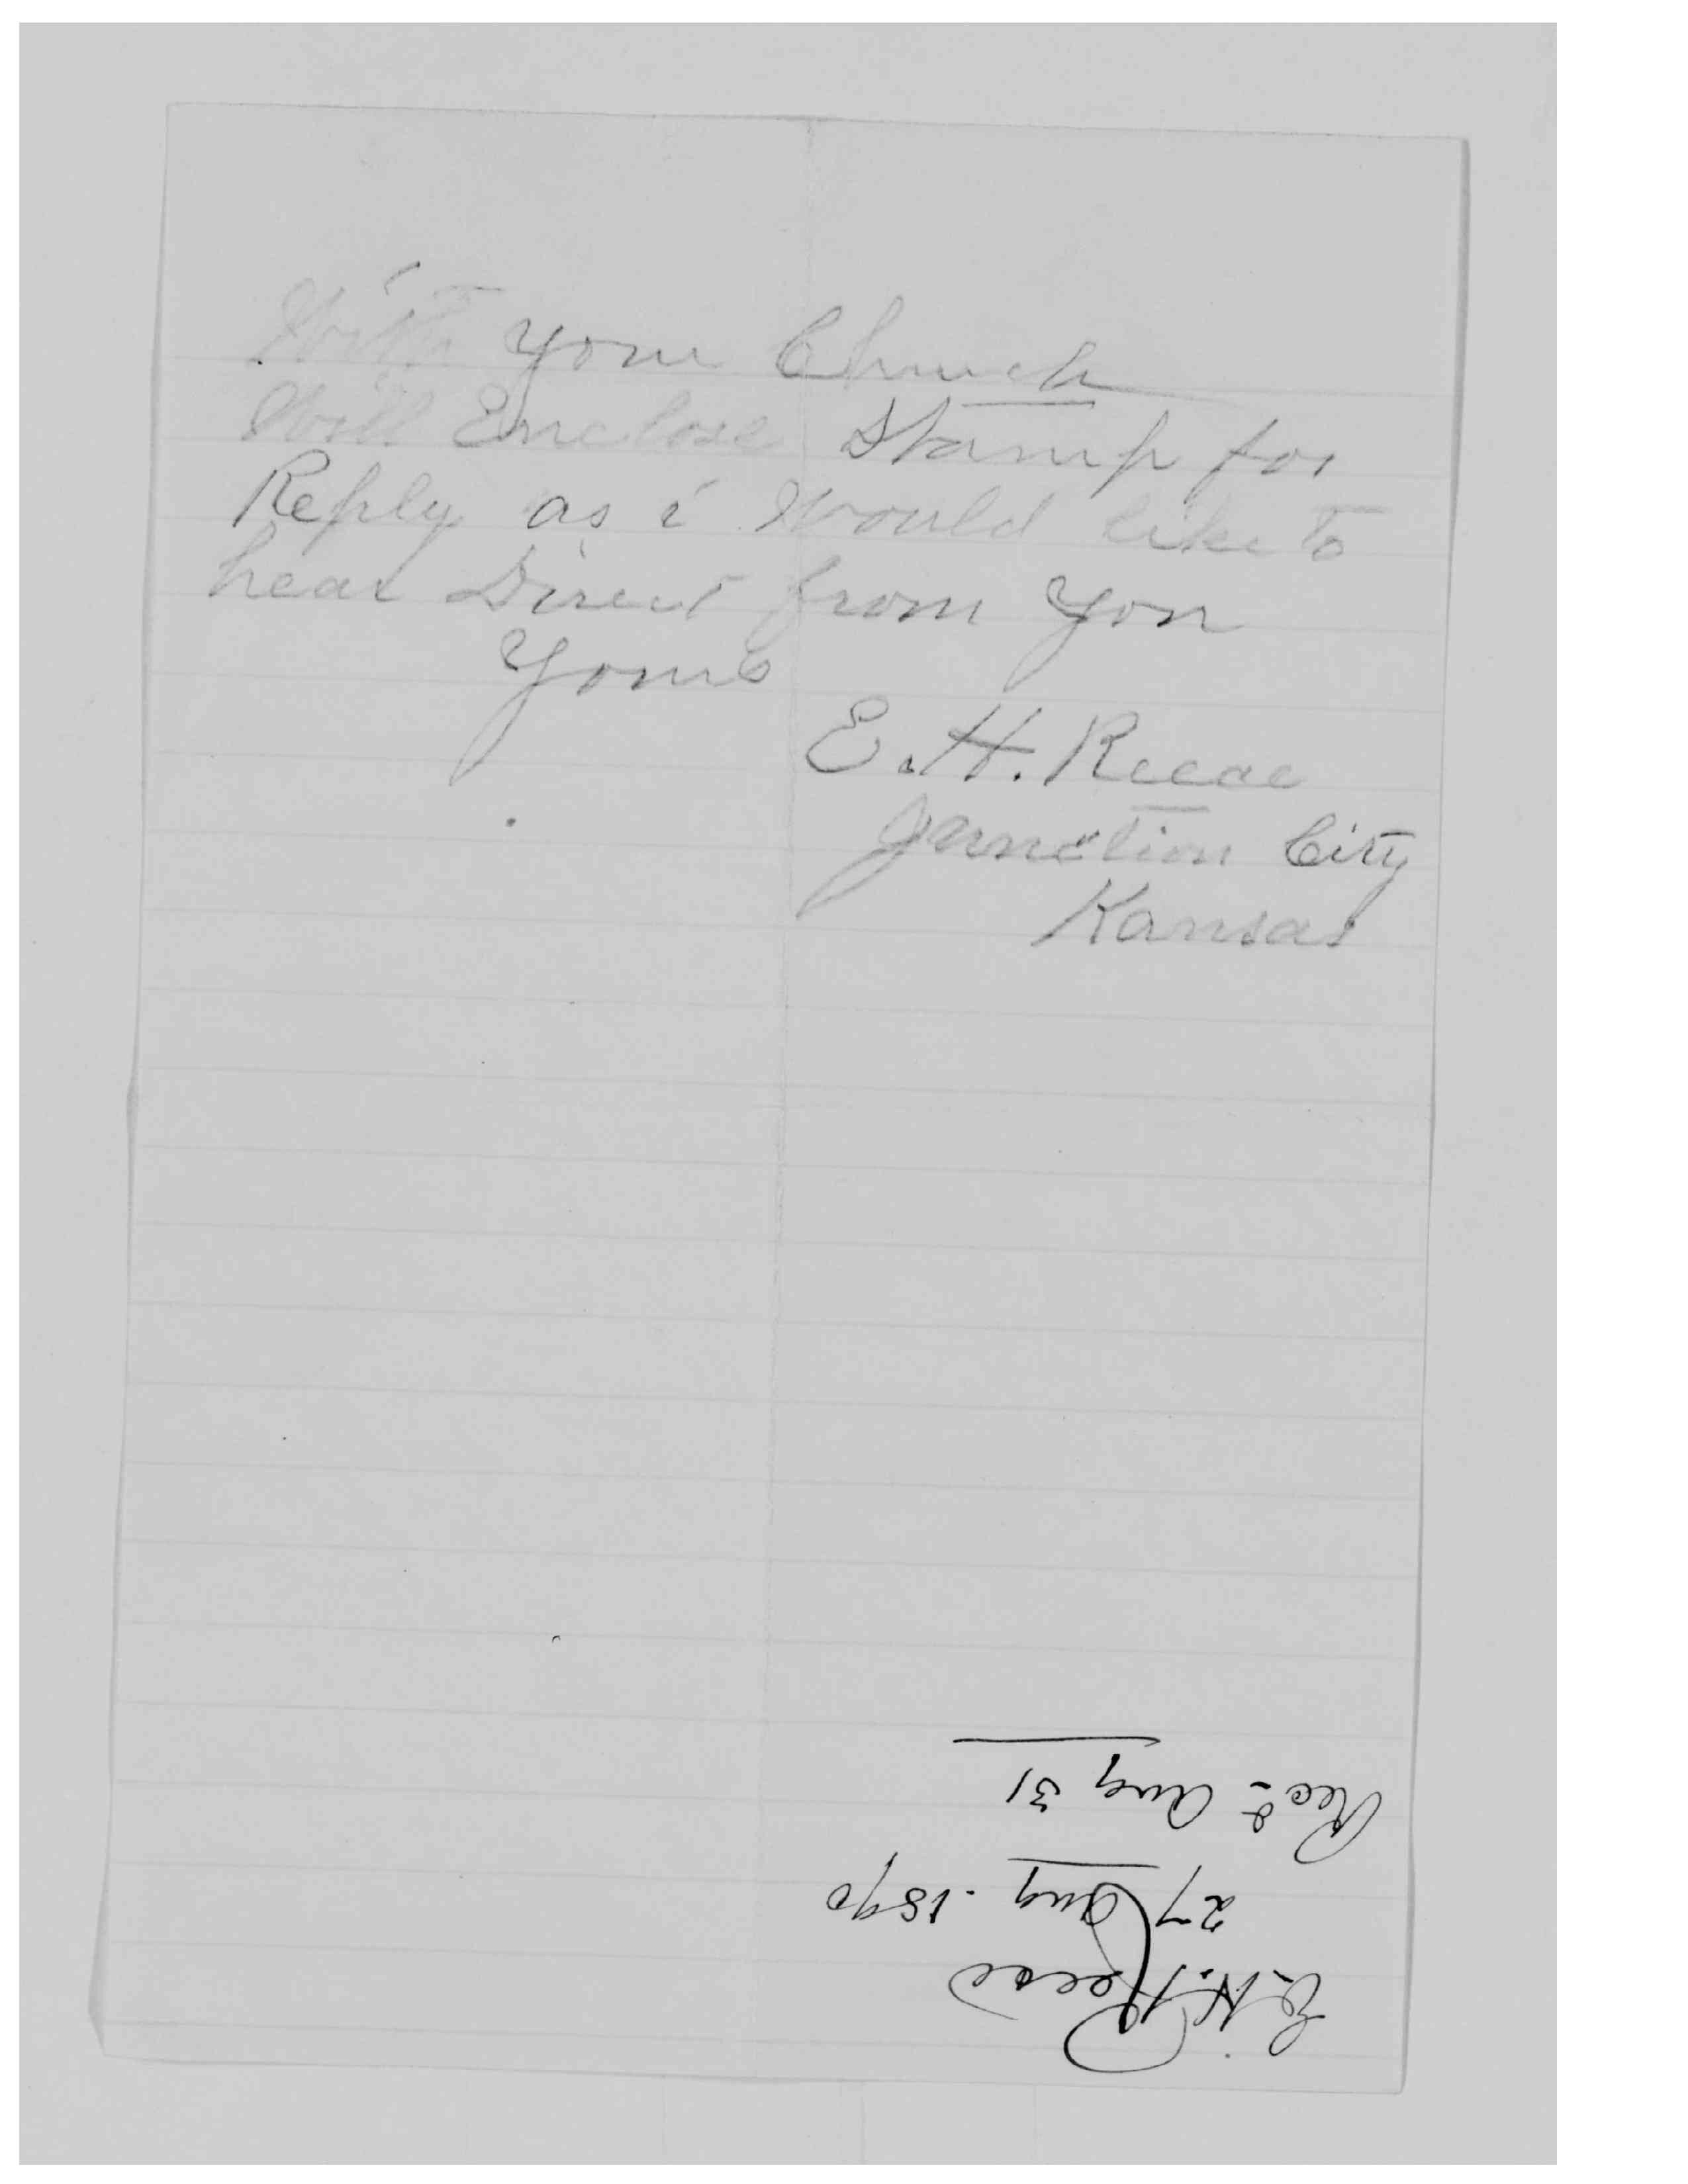 With your Church
Will Enclose Stamp for
Reply as i Would like to
hear Direct from you
Yours
E. H. Reece
Junction City
Kansas
E. H. Reece
27 Aug. 1890
Recd Aug 31